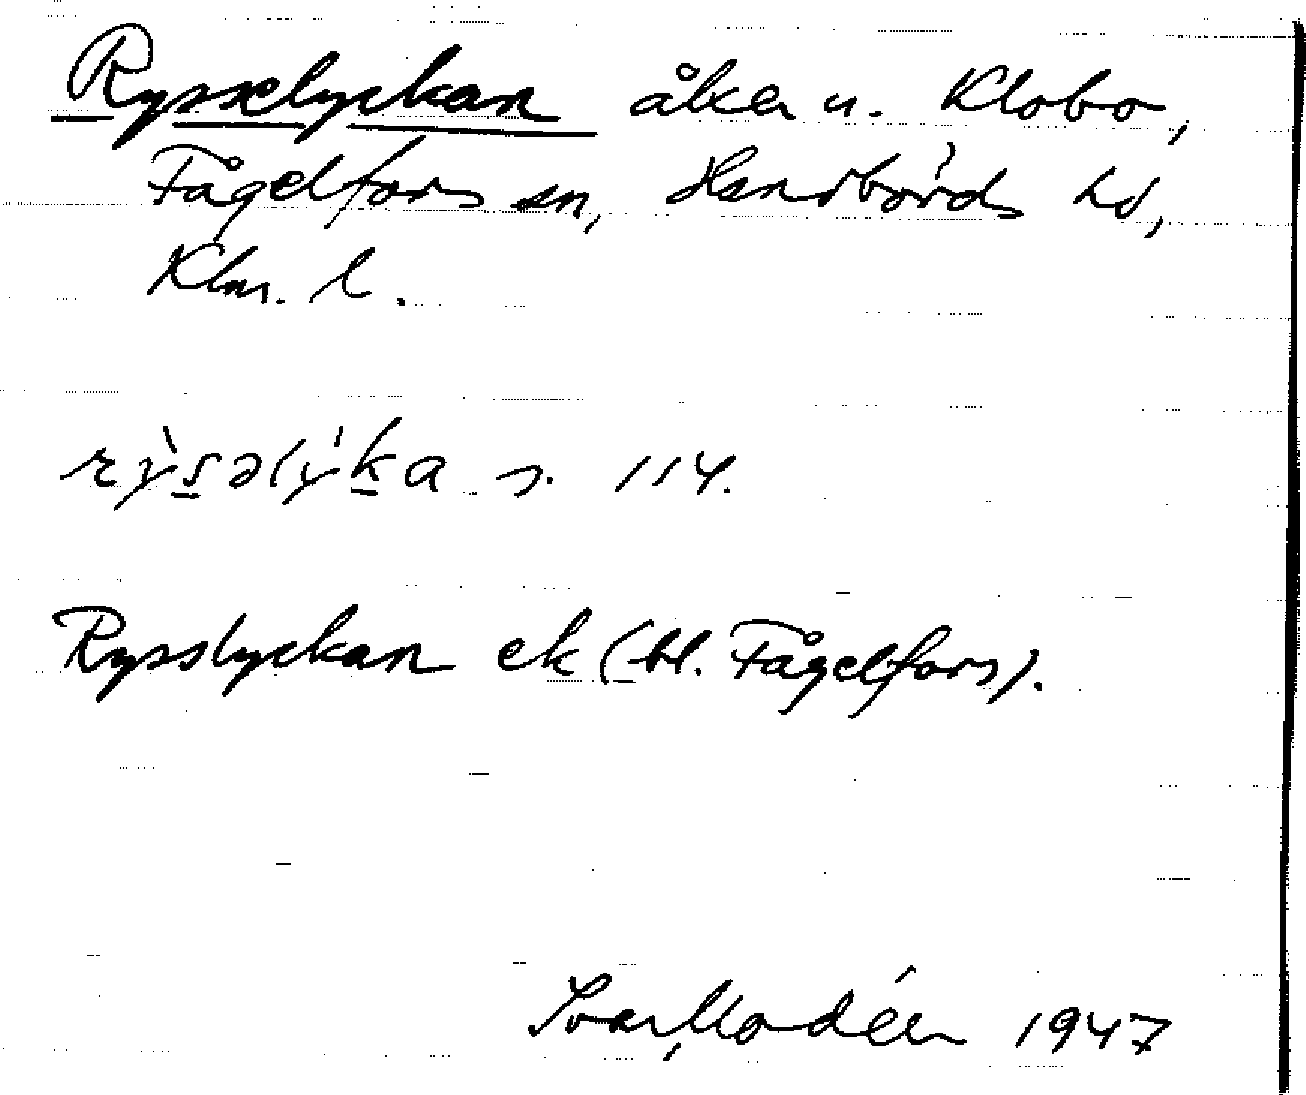 Rysselyckan åker u. Klobo,
Fågelfors sn, Handbörds hd,
Klm. l.
rỳs̲əlý̀k̲a s. 114.
Rysslyckan ek (bl. Fågelfors).
Ivar Modéer 1947